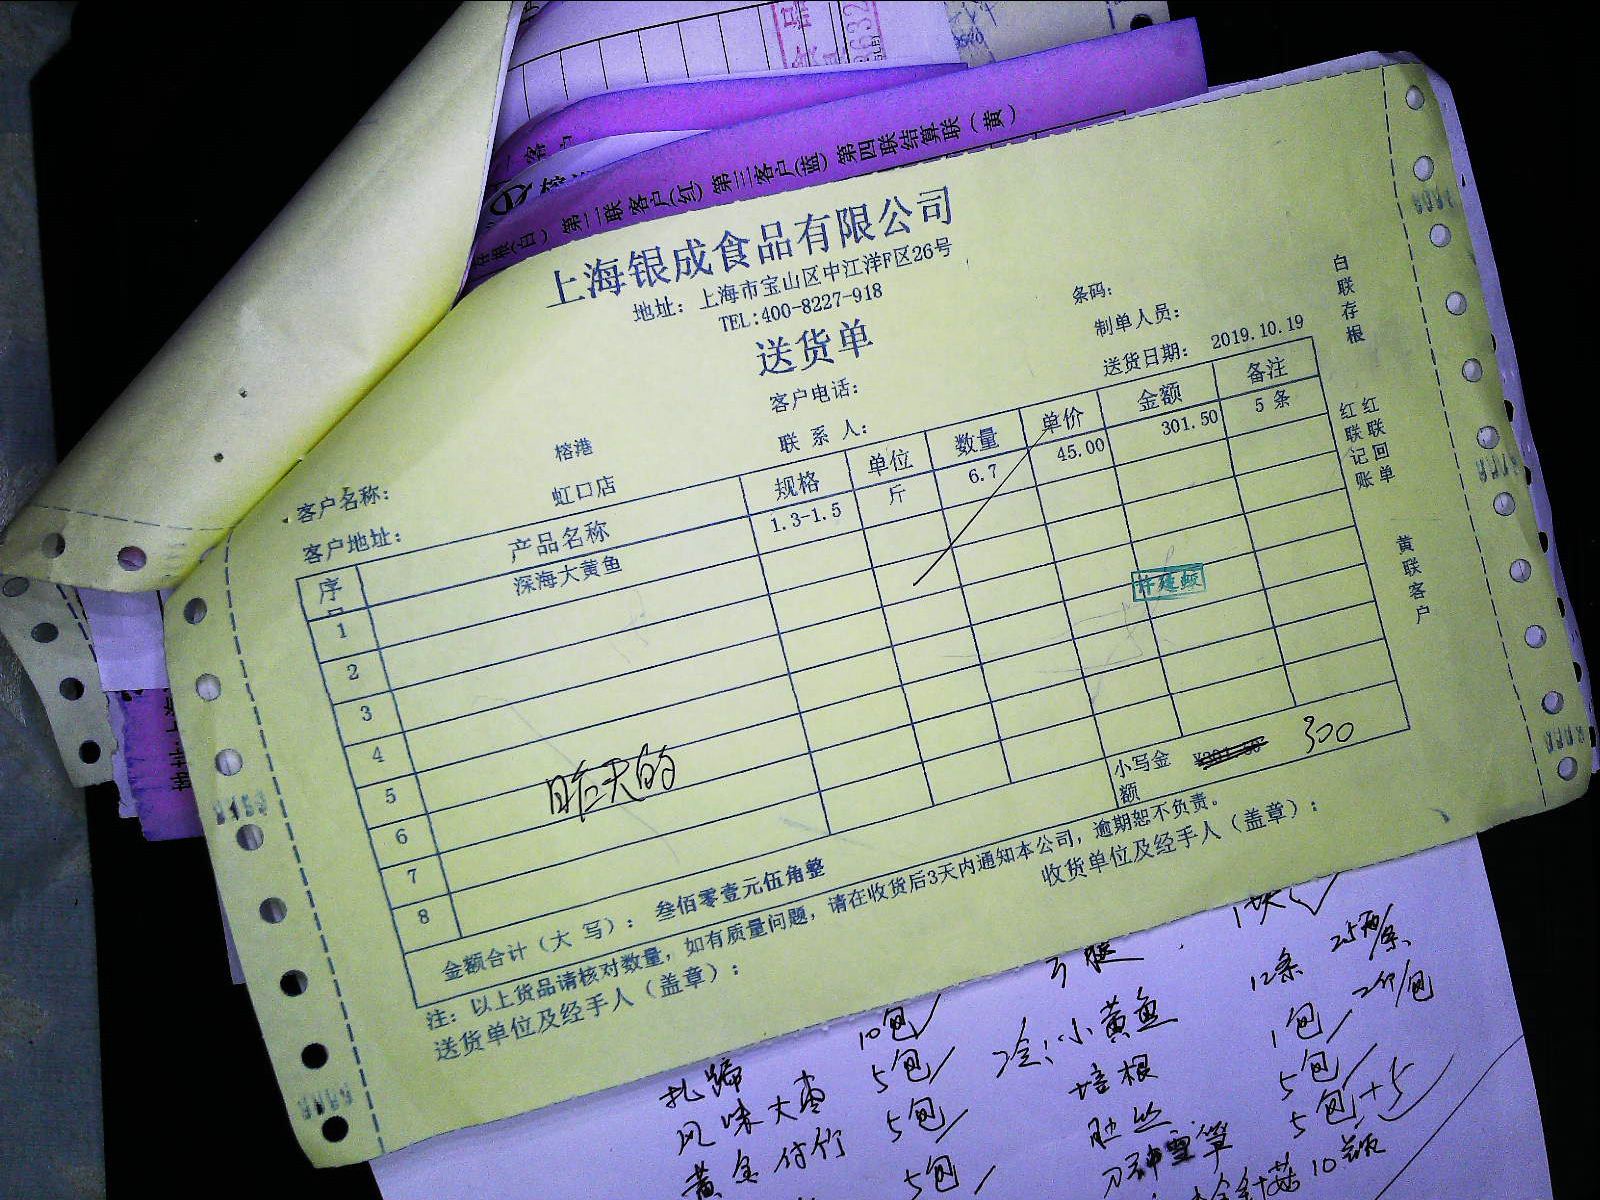 第二联客户(红) 第三客户(蓝) 第四联结算联（黄）
上海银成食品有限公司
地址： 上海市宝山区中江洋F区26号
TEL:400-8227-918
送货单
条码:
制单人员:
送货日期: 2019.10.19
客户电话:
联 系 人:
客户名称: 榕港
客户地址: 虹口店
序 产品名称 规格 单位 数量 单价 金额 备注
1 深海大黄鱼 1.3-1.5 斤 6.7 45.00 301.50 5 条
2
3
4
5
6
7
8
昨天的
小写金额 300
金额合计（大 写）: 叁佰零壹元伍角整
注: 以上货品请核对数量, 如有质量问题, 请在收货后3天内通知本公司, 逾期恕不负责。
送货单位及经手人（盖章）:
收货单位及经手人（盖章）:
白联存根
红联记账
红联回单
黄联客户
扎蹄 10包
风味大枣 5包
黄金付竹 5包
5包
小黄鱼 12条
培根 1包
肚丝 5包
5包+5